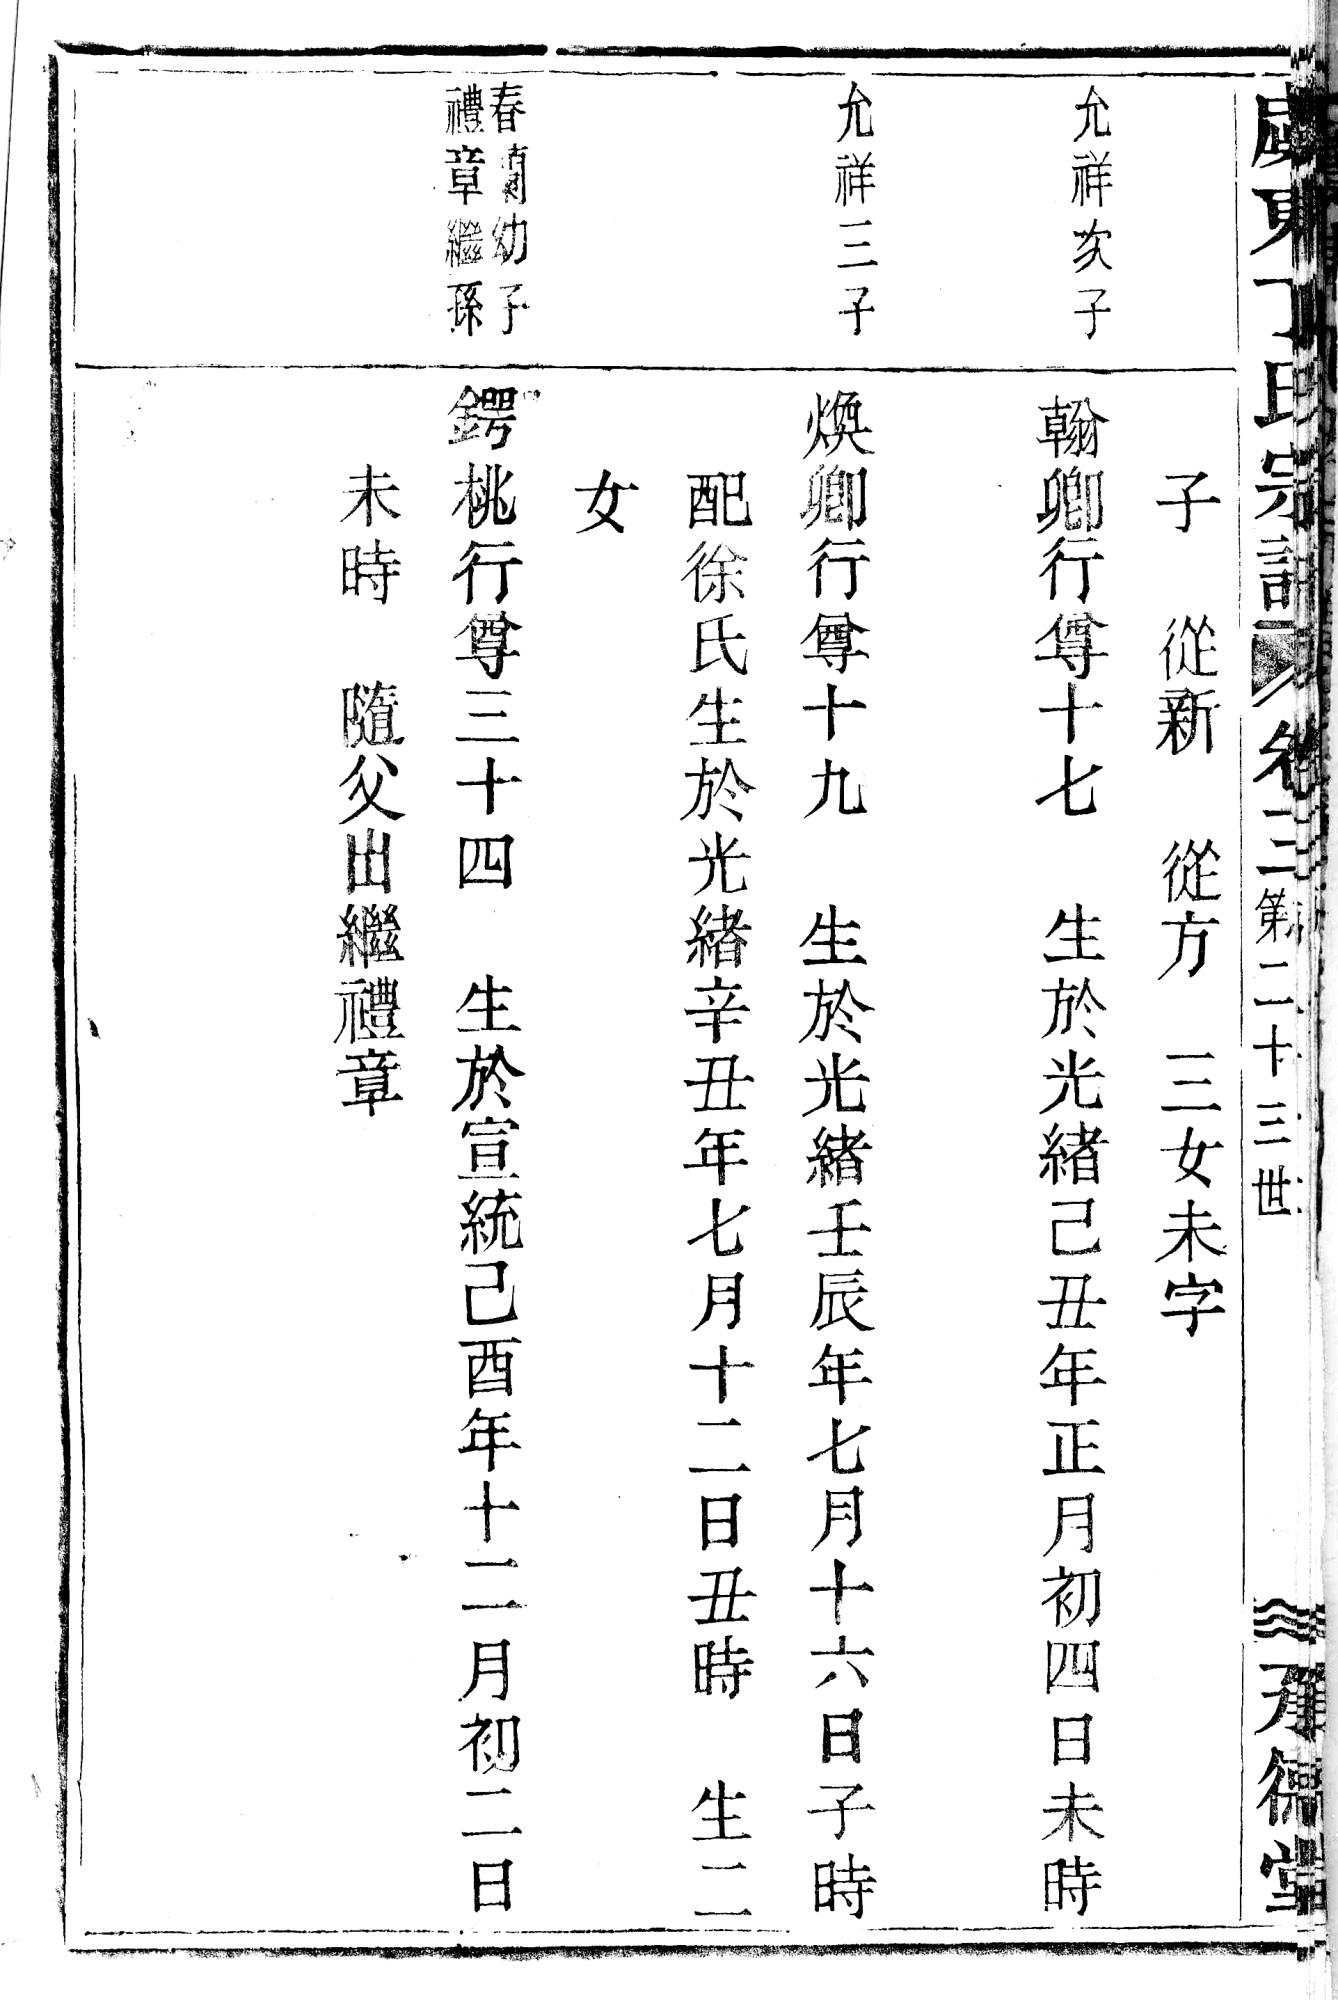 東丁氏宗譜 卷三 第二十三世 承德堂
子 從新 從方 三女未字
允祥次子
翰卿行尊十七 生於光緒己丑年正月初四日未時
允祥三子
煥卿行尊十九 生於光緒壬辰年七月十六日子時
配徐氏生於光緒辛丑年七月十二日丑時 生二
女
春蘭幼子
禮章繼孫
鍔桃行尊三十四 生於宣統己酉年十二月初二日
未時 隨父出繼禮章